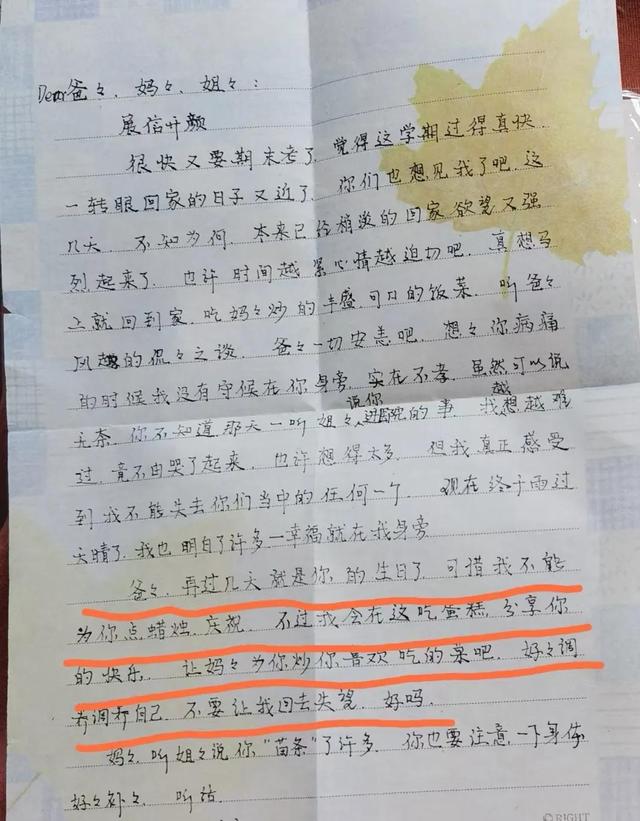 Dear爸々、妈々、姐々：
展信开颜
很快又要期末考了，觉得这学期过得真快，
一转眼回家的日子又近了，你们也想见我了吧，这
几天，不知为何，本来已经稍淡的回家欲望又强
烈起来了，也许时间越紧心情越迫切吧，真想马
上就回到家，吃妈々炒的丰盛可口的饭菜，听爸々
风趣的侃々之谈，爸々一切安恙吧，想々你病痛
的时候我没有守候在你身旁，实在不孝，虽然可以说
无奈，你不知道那天一听姐々说你的事，我越想越难
过，竟不由哭了起来，也许想得太多，但我真正感受
到我不能失去你们当中的任何一个，现在终于雨过
天晴了，我也明白了许多一幸福就在我身旁
爸々，再过几天就是你的生日了，可惜我不能
为你点蜡烛，庆祝，不过我会在这吃蛋糕，分享你
的快乐，让妈々为你炒你喜欢吃的菜吧，好々调
养调养自己，不要让我回去失望，好吗，
妈々，听姐々说你“苗条”了许多，你也要注意一下身体
好々补々，听话
©RIGHT